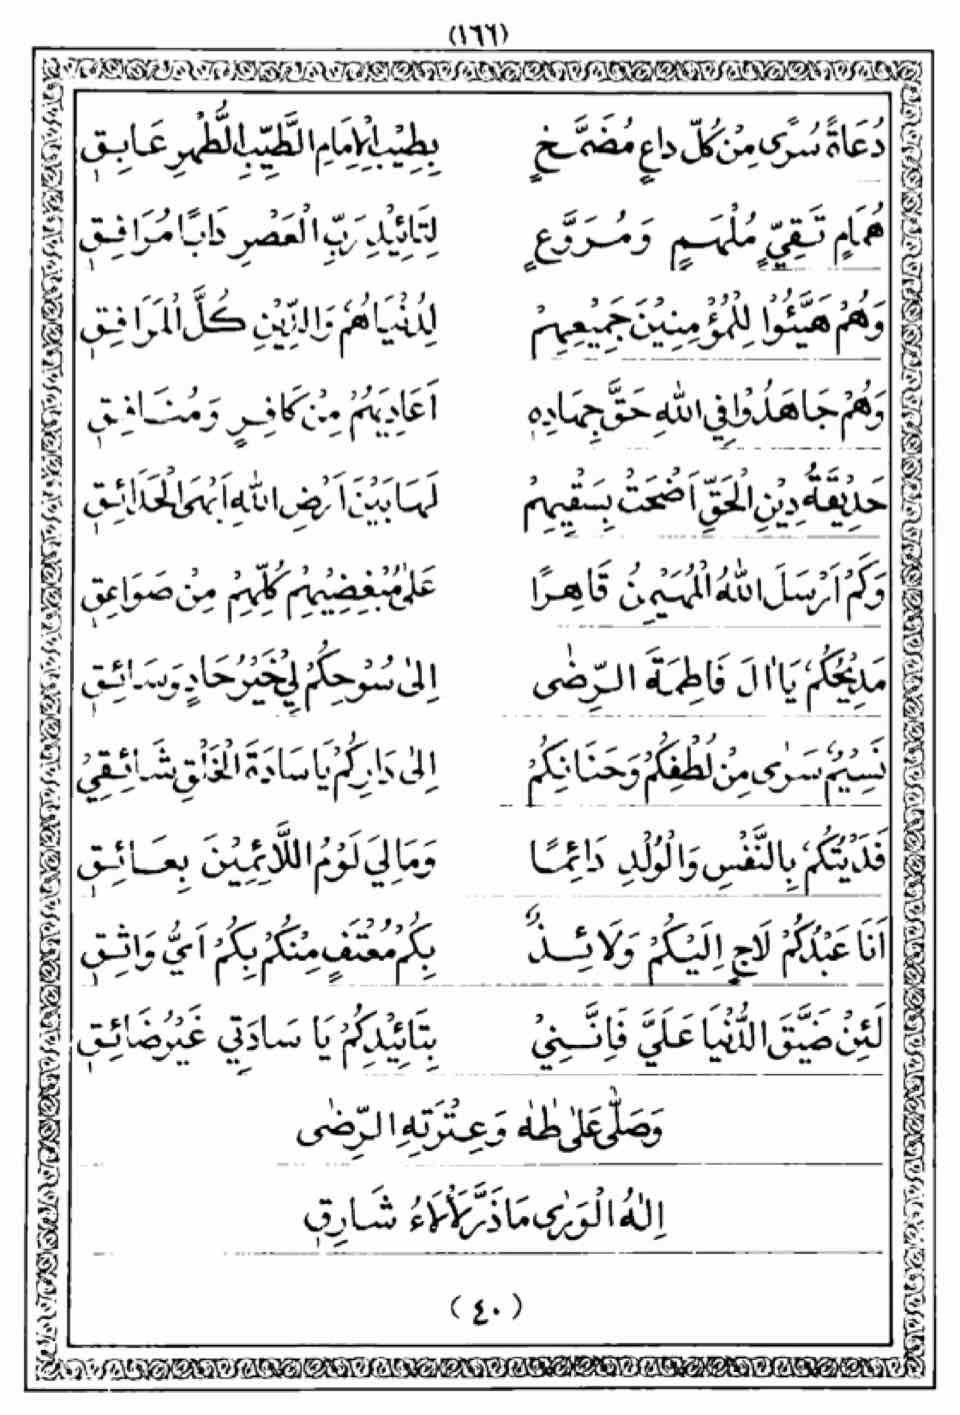 (١٦٦)
دُعَاةً سُرًى مِنْ كُلِّ دَاعٍ مُضَمَّخٍ بِطِيْبِ الْاِمَامِ الطَّيِّبِ الطُّهْرِ عَابِقِ
هُمَامٍ تَقِيٍّ مُلْهَمٍ وَمُرَوَّعٍ لِتَائِيْدِ رَبِّ الْعَصْرِ دَابًا مُرَافِقِ
وَهُمْ هَيَّئُوْا لِلْمُؤْمِنِيْنَ جَمِيْعِهِمْ لِدُنْيَاهُمْ وَالدِّيْنِ كُلَّ الْمَرَافِقِ
وَهُمْ جَاهَدُوْا فِي اللهِ حَقَّ جِهَادِهِ اَعَادِيَهُمْ مِنْ كَافِرٍ وَمُنَافِقِ
حَدِيْقَةُ دِيْنِ الْحَقِّ اَضْحَتْ بِسَقْيِهِمْ لَهَا بَيْنَ اَرْضِ اللهِ اَبْهَى الْحَدَائِقِ
وَكَمْ اَرْسَلَ اللهُ الْمُهَيْمِنُ قَاهِرًا عَلٰى مُبْغِضِيْهِمْ كُلِّهِمْ مِنْ صَوَاعِقِ
مَدِيْحُكُمْ يَا اٰلَ فَاطِمَةَ الرِّضٰى اِلٰى سُوْحِكُمْ لِيْ خَيْرُ حَادٍ وَسَائِقِ
نَسِيْمٌ سَرٰى مِنْ لُطْفِكُمْ وَحَنَانِكُمْ اِلٰى دَارِكُمْ يَا سَادَةَ الْخَلْقِ شَائِقِيْ
فَدَيْتُكُمْ بِالنَّفْسِ وَالْوُلْدِ دَائِمًا وَمَا لِيَ لَوْمُ اللَّائِمِيْنَ بِعَائِقِ
اَنَا عَبْدُكُمْ لَاجٍ اِلَيْكُمْ وَلَائِذٌ بِكُمْ مُعْتَفٍ مِنْكُمْ بِكُمْ اَيُّ وَاثِقِ
لَئِنْ ضَيَّقَ الدُّنْيَا عَلَيَّ فَاِنَّنِيْ بِتَائِيْدِكُمْ يَا سَادَتِي غَيْرُ ضَائِقِ
وَصَلّٰى عَلٰى طٰهٰ وَعِتْرَتِهِ الرِّضٰى
اِلٰهُ الْوَرٰى مَا ذَرَّ لَأْلَاءُ شَارِقِ
(٤٠)